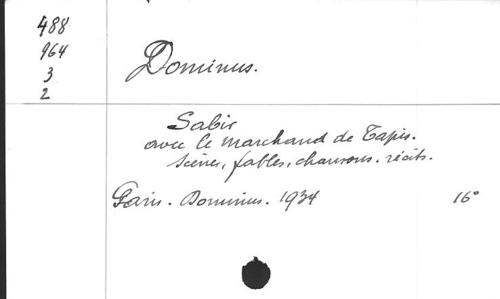 488
964
3
2
Dominus.
Sabir
avec le Marchand de Tapis.
Scènes, fables, chansons. récits.
Paris. Dominus. 1934 16°